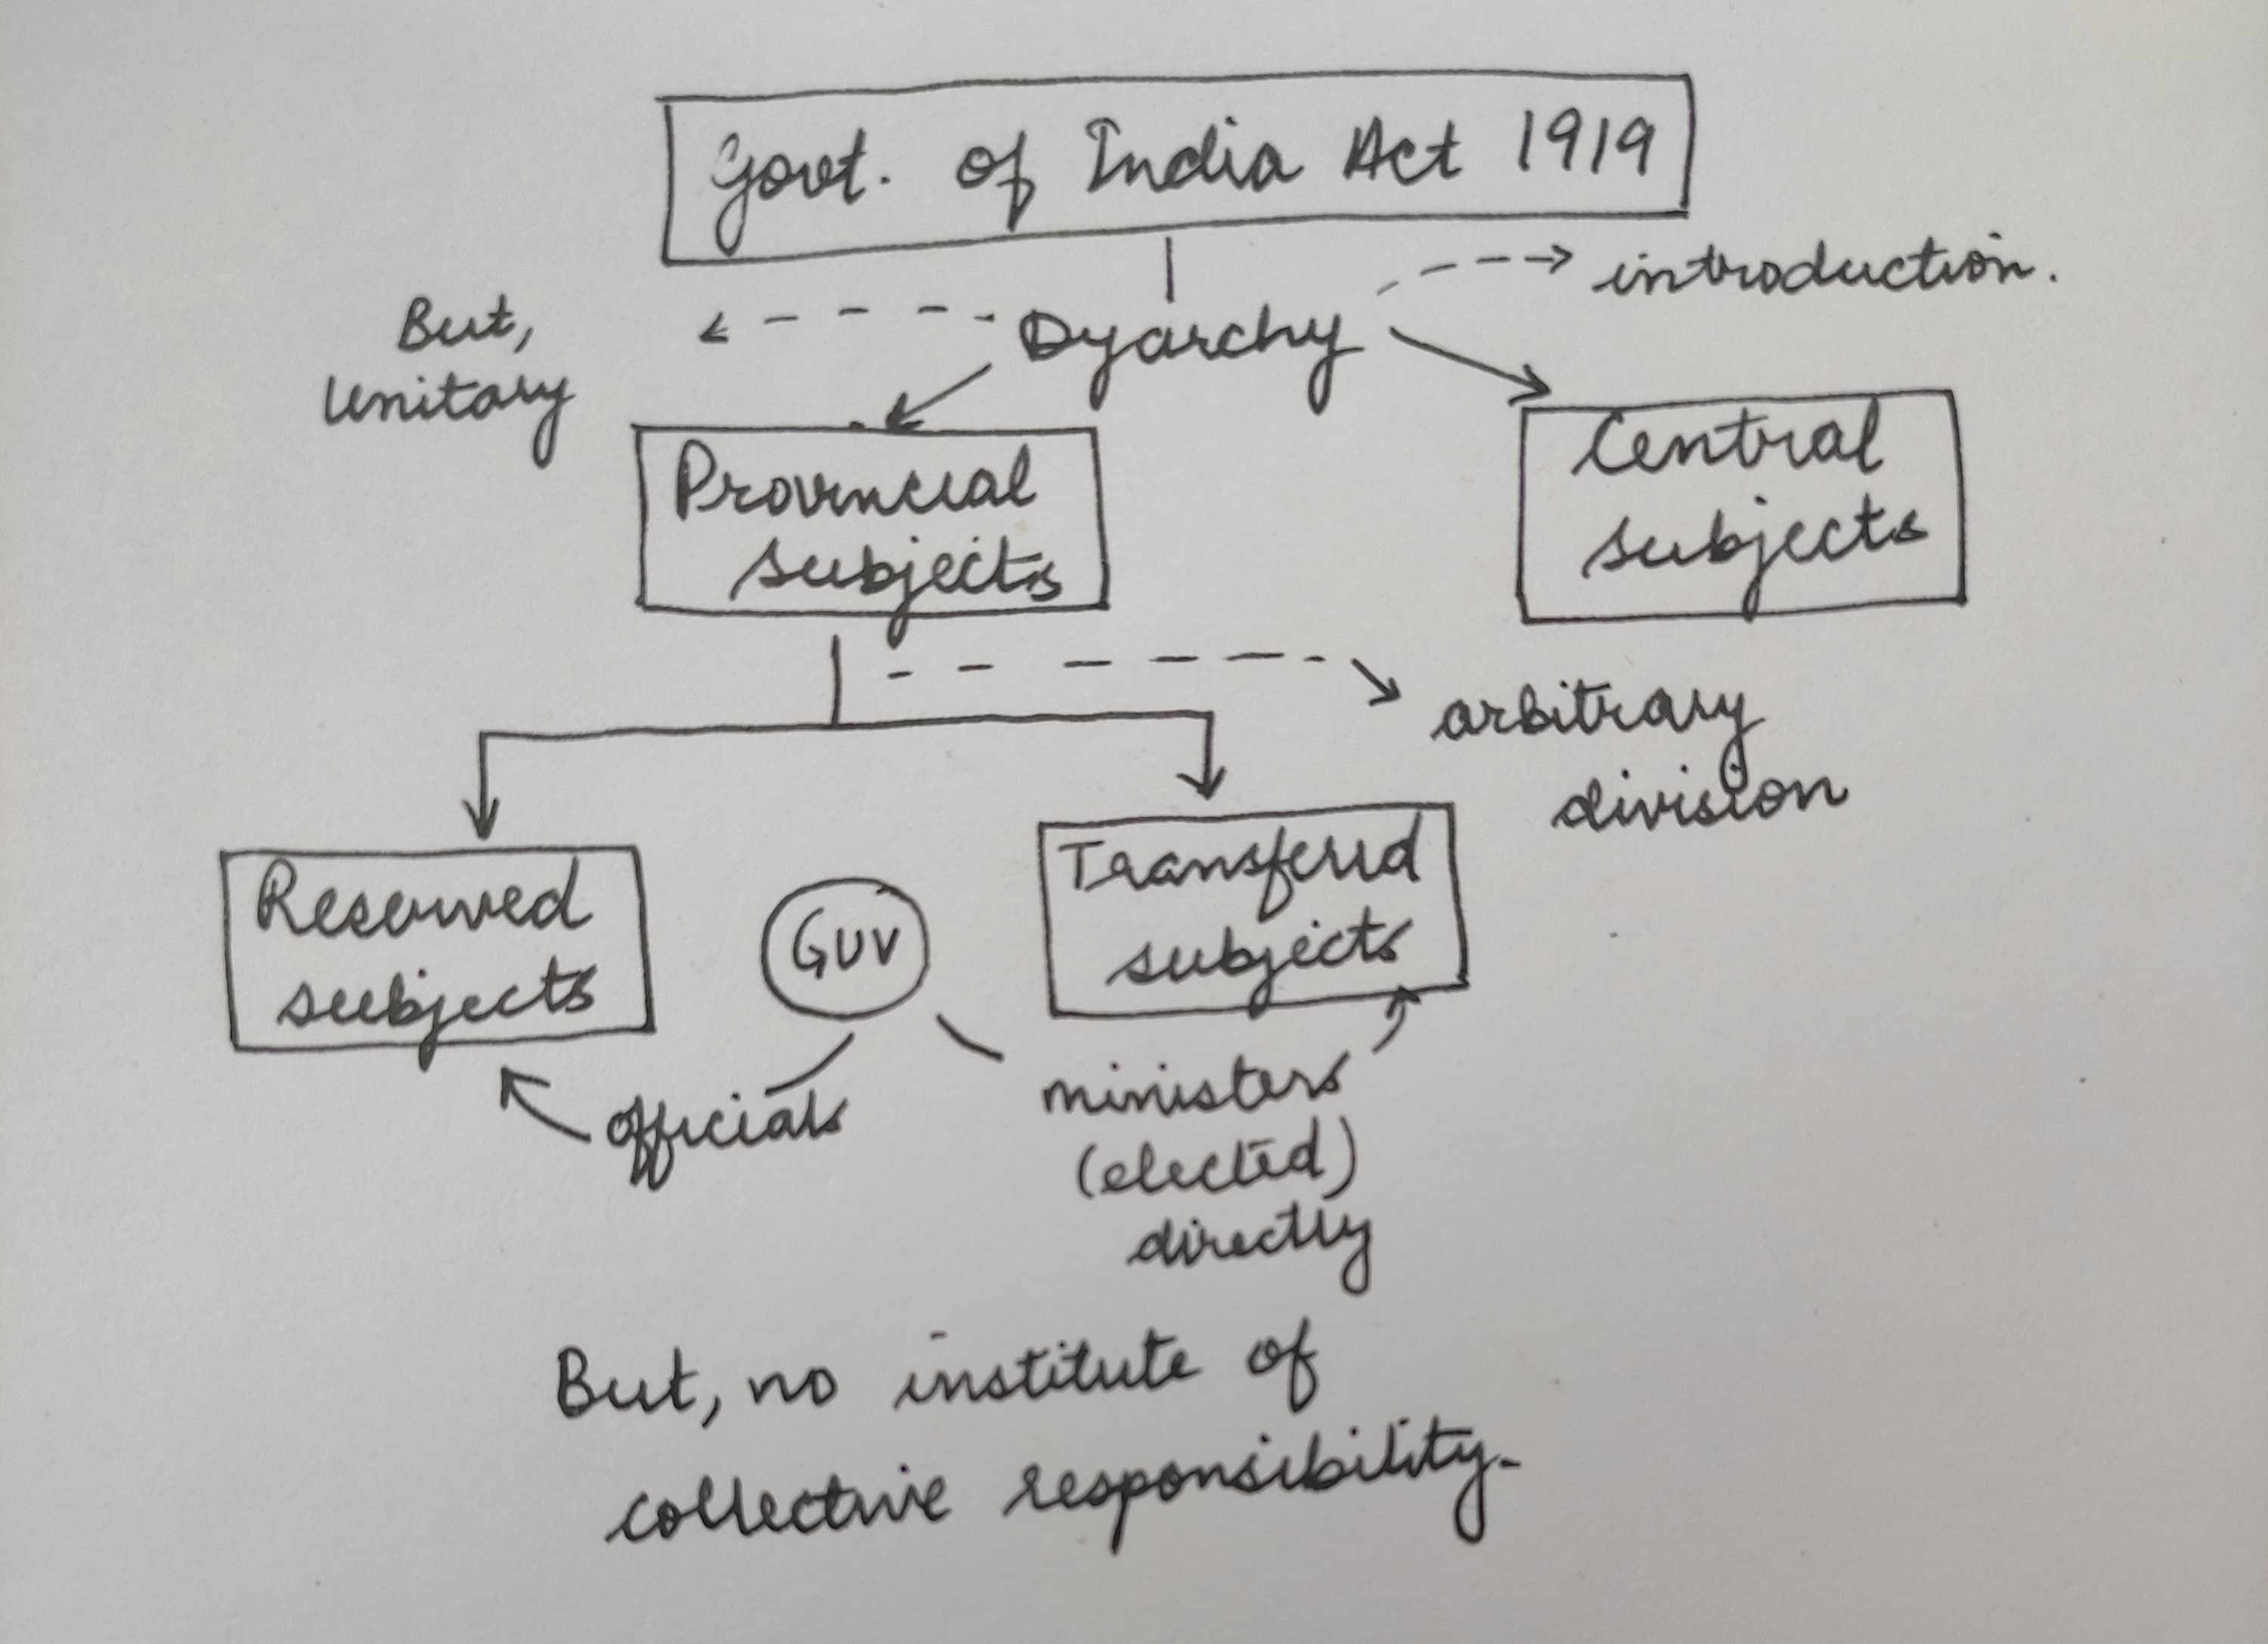 Govt. of India Act 1919
introduction.
But,
Unitary
Dyarchy
Provincial
subjects
Central
subjects
arbitrary
division
Reserved
subjects
GUV
Transferred
subjects
officials
ministers
(elected)
directly
But, no institute of
collective responsibility.